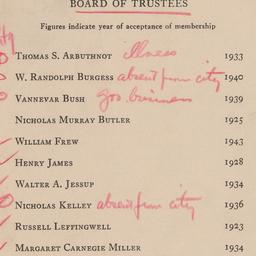 BOARD OF TRUSTEES
Figures indicate year of acceptance of membership
THOMAS S. ARBUTHNOT illness 1933
W. RANDOLPH BURGESS absent from city 1940
VANNEVAR BUSH gov. business 1939
NICHOLAS MURRAY BUTLER 1925
WILLIAM FREW 1943
HENRY JAMES 1928
WALTER A. JESSUP 1934
NICHOLAS KELLEY absent from city 1936
RUSSELL LEFFINGWELL 1923
MARGARET CARNEGIE MILLER 1934